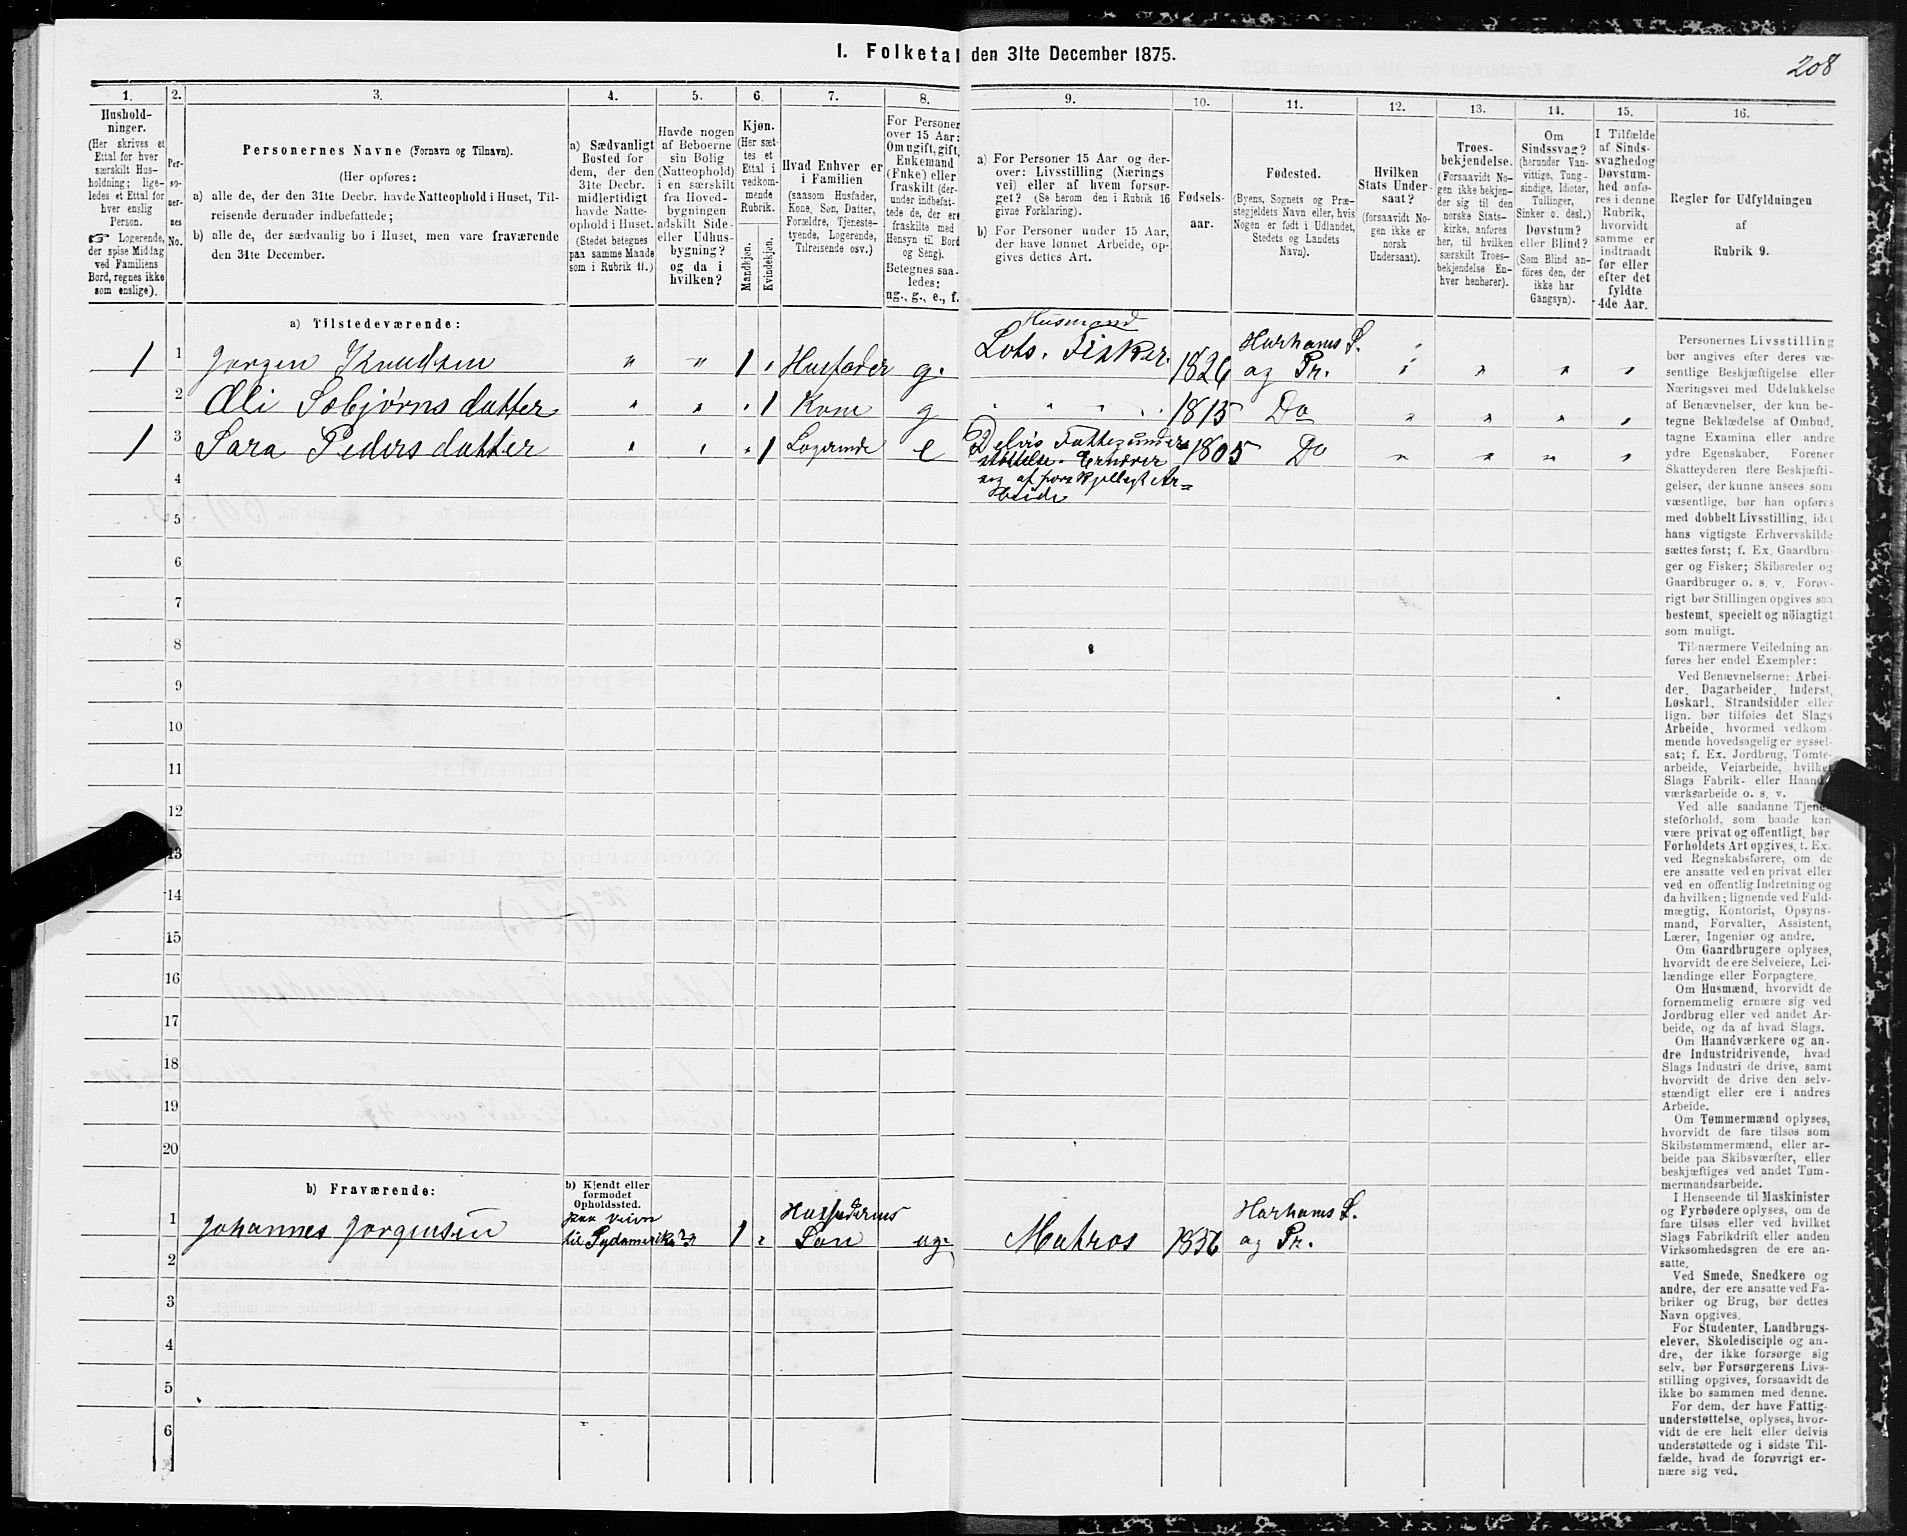 208
I. Folketal den 31te December 1875.
1.
2.
3.
4.
5.
6.
7.
8.
9.
10.
11.
12.
13.
14.
15.
16.
Hushold-
ninger.
(Her skrives et
Ettal for hver
særskilt Hus-
holdning; lige-
ledes et Ettal for
hver enslig
Person.
☞ Logerende,
der spise Middag
ved Familiens
Bord, regnes ikke
som enslige).
Per-
so-
ner-
nes
No.
Personernes Navne (Fornavn og Tilnavn).
(Her opføres:
a) alle de, der den 31te Decbr. havde Natteophold i Huset, Til-
reisende derunder indbefattede;
b) alle de, der sædvanlig bo i Huset, men vare fraværende
den 31te December.
a) Sædvanligt
Bosted for
dem, der den
31te Decbr.
midlertidigt
havde Natte-
ophold i Huset.
(Stedet betegnes
paa samme Maade
som i Rubrik 11.)
Havde nogen
af Beboerne
sin Bolig
(Natteophold)
i en særskilt
fra Hoved-
bygningen
adskilt Side-
eller Udhus-
bygning?
og da i
hvilken?
Kjøn.
(Her sæt-
tes et
Ettal i
vedkom-
mende
Rubrik.
Mandkjøn.
Kvindekjøn.
Hvad Enhver er
i Familien
(saasom Husfader,
Kone, Søn, Datter,
Forældre, Tjeneste-
tyende, Logerende,
Tilreisende osv.)
For Personer
over 15 Aar:
Om ugift, gift,
Enkemand
(Enke) eller
fraskilt (der-
under indbefat-
tede de, der ere
fraskilte med
Hensyn til Bord
og Seng).
Betegnes saa-
ledes:
ug., g., e., f.
a) For Personer 15 Aar og der-
over: Livsstilling (Nærings
vei) eller af hvem forsør-
get? (Se herom den i Rubrik 16
givne Forklaring).
b) For Personer under 15 Aar,
der have lønnet Arbeide, op-
gives dettes Art.
Fødsels-
aar.
Fødested.
(Byens, Sognets og Præ-
stegjeldets Navn eller, hvis
Nogen er født i Udlandet,
Stedets og Landets
Navn).
Hvilken
Stats Under-
saat?
(forsaavidt No-
gen ikke er
norsk
Undersaat).
Troes-
bekjendelse.
(Forsaavidt No-
gen ikke bekjen-
der sig til den
norske Stats-
kirke, anføres
her, til hvilken
særskilt Troes-
bekjendelse En-
hver henhører).
Om
Sindssvag?
(herunder Van-
vittige, Tung-
sindige, Idioter,
Tullinger,
Sinker o. desl.)
Døvstum?
eller Blind?
(Som Blind an-
føres den, der
ikke har
Gangsyn).
I Tilfælde
af Sinds-
svaghed og
Døvstum-
hed anfø-
res i denne
Rubrik,
hvorvidt
samme er
indtraadt
før eller
efter det
fyldte
4de Aar.
Regler for Udfyldningen
af
Rubrik 9.
a) Tilstedeværende:
1 1 Jørgen Knudsen " " 1 " Husfader g. Husmand Lots. Fisker. 1826 Harhams S. og Pr. " " " "
2 Oli Sebjørnsdatter " " " 1 Kone g " " " " 1815 Do " " " "
1 3 Sara Pedersdatter " " " 1 Logerende e Delvis Fattigunder= 1805 Do " " " "
støttelse. Ernærer
sig af forskjelligt Ar=
beide
4
5
6
7
8
9
10
11
12
13
14
15
16
17
18
19
20
b) Fraværende:
b) Kjendt eller
formodet
Opholdssted.
1 Johannes Jørgensen paa Veien til Sydamerika 1 " Husfaderens Søn ug. Matros 1856 Harhams S. og Pr.
2
3
4
5
6
Personernes Livsstilling
bør angives efter deres væ-
sentlige Beskjæftigelse eller
Næringsvei med Udelukkelse
af Benævnelser, der kun be-
tegne Beklædelse af Ombud,
tagne Examina eller andre
ydre Egenskaber. Forener
Skatteyderen flere Beskjæfti-
gelser, der kunne ansees som
væsentlige, bør han opføres
med dobbelt Livsstilling, idet
hans vigtigste Erhvervskilde
sættes først; f. Ex. Gaardbru-
ger og Fisker; Skibsreder og
Gaardbruger o. s. v. Forøv-
rigt bør Stillingen opgives saa
bestemt, specielt og nöiagtigt
som muligt.
Til nærmere Veiledning an-
føres her endel Exempler:
Ved Benævnelserne: Arbei-
der, Dagarbeider, Inderst,
Løskarl, Strandsidder eller
lign. bør tilføies det Slags
Arbeide, hvormed vedkom-
mende hovedsagelig er syssel-
sat; f. Ex. Jordbrug, Tomte-
arbeide, Veiarbeide, hvilket
Slags Fabrik- eller Haand-
værksarbeide o. s. v.
Ved alle saadanne Tjene-
steforhold, som baade kan
være privat og offentligt, bør
Forholdets Art opgives, f. Ex.
ved Regnskabsførere, om de
ere ansatte ved en privat eller
ved en offentlig Indretning og
da hvilken; lignende ved Fuld-
mægtig, Kontorist, Opsyns-
mand, Forvalter, Assistent,
Lærer, Ingeniør og andre.
Om Gaardbrugere oplyses,
hvorvidt de ere Selveiere, Lei-
lændinge eller Forpagtere.
Om Husmænd, hvorvidt de
fornemmelig ernære sig ved
Jordbrug eller ved andet Ar-
beide, og da af hvad Slags.
Om Haandværkere og an-
dre Industridrivende, hvad
Slags Industri de drive, samt
hvorvidt de drive den selv-
stændigt eller ere i andres
Arbeide.
Om Tømmermænd oplyses,
hvorvidt de fare tilsøs som
Skibstømmermænd, eller ar-
beide paa Skibsværfter, eller
beskjæftiges ved andet Tøm-
mermandsarbeide.
I Henseende til Maskinister
og Fyrbødere oplyses, om de
fare tilsøs eller ved hvilket
Slags Fabrikdrift eller anden
Virksomhedsgren de ere an-
satte.
Ved Smede, Snedkere og
andre, der ere ansatte ved Fa-
briker og Brug, bør dettes
Navn opgives.
For Studenter, Landbrugs-
elever, Skoledisciple og an-
dre, der ikke forsørge sig
selv, bør Forsørgerens Livs-
stilling opgives, forsaavidt de
ikke bo sammen med denne.
For dem, der have Fattig-
understøttelse, oplyses, hvor-
vidt de ere helt eller delvis
understøttede og i sidste Til-
fælde, hvad de forøvrigt er-
nære sig ved.